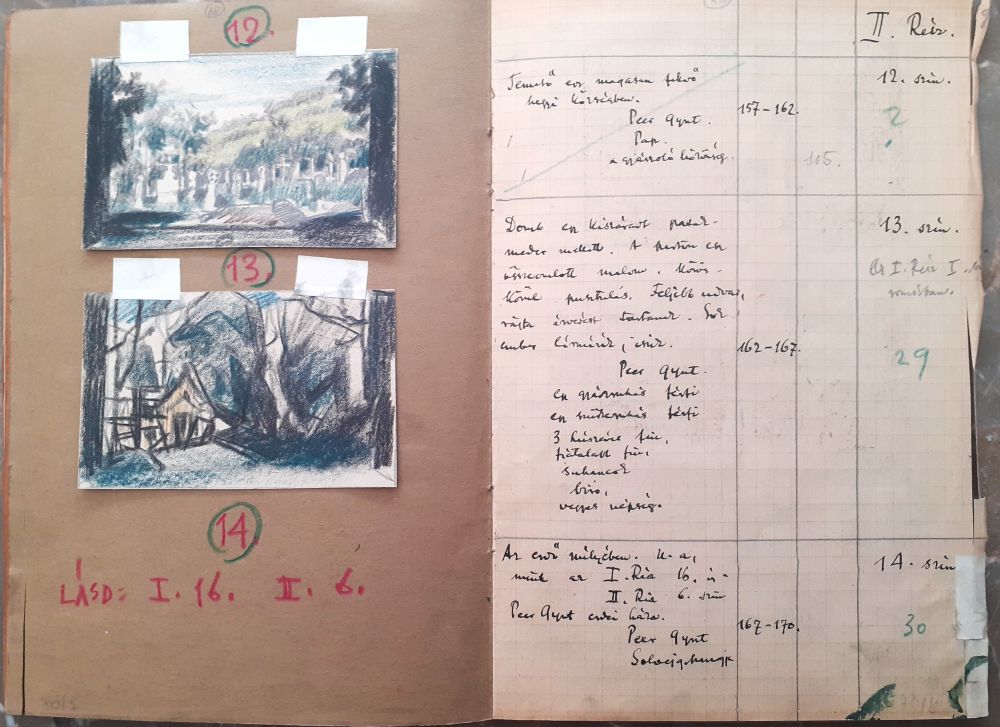 12.
13.
14.
LÁSD: I. 16. II. 6.
II. Rész.
Temető egy magasan fekvő
hegyi községben.
Peer Gynt.
Pap.
a gyászoló község.
157–162.
12. szín.
2
105.
Domb egy kiszáradt patak-
meder mellett. A parton egy
összeomlott malom. Körös-
körül pusztulás. Feljebb udvar,
rajta árverést tartanak. Sok
ember lármázik, iszik.
Peer Gynt.
egy gyászruhás férfi
egy szürkeruhás férfi
3 húszéves fiú,
fiatalabb fiú,
suhancok
bíró,
vegyes népség.
162–167.
13. szín.
I. Rész I.
29
Az erdő mélyében. U. a,
mint az I. Rész 16. és
II. Rész 6. szín
Peer Gynt erdei háza.
Peer Gynt
Solvejg hangja
167–170.
14. szín
30